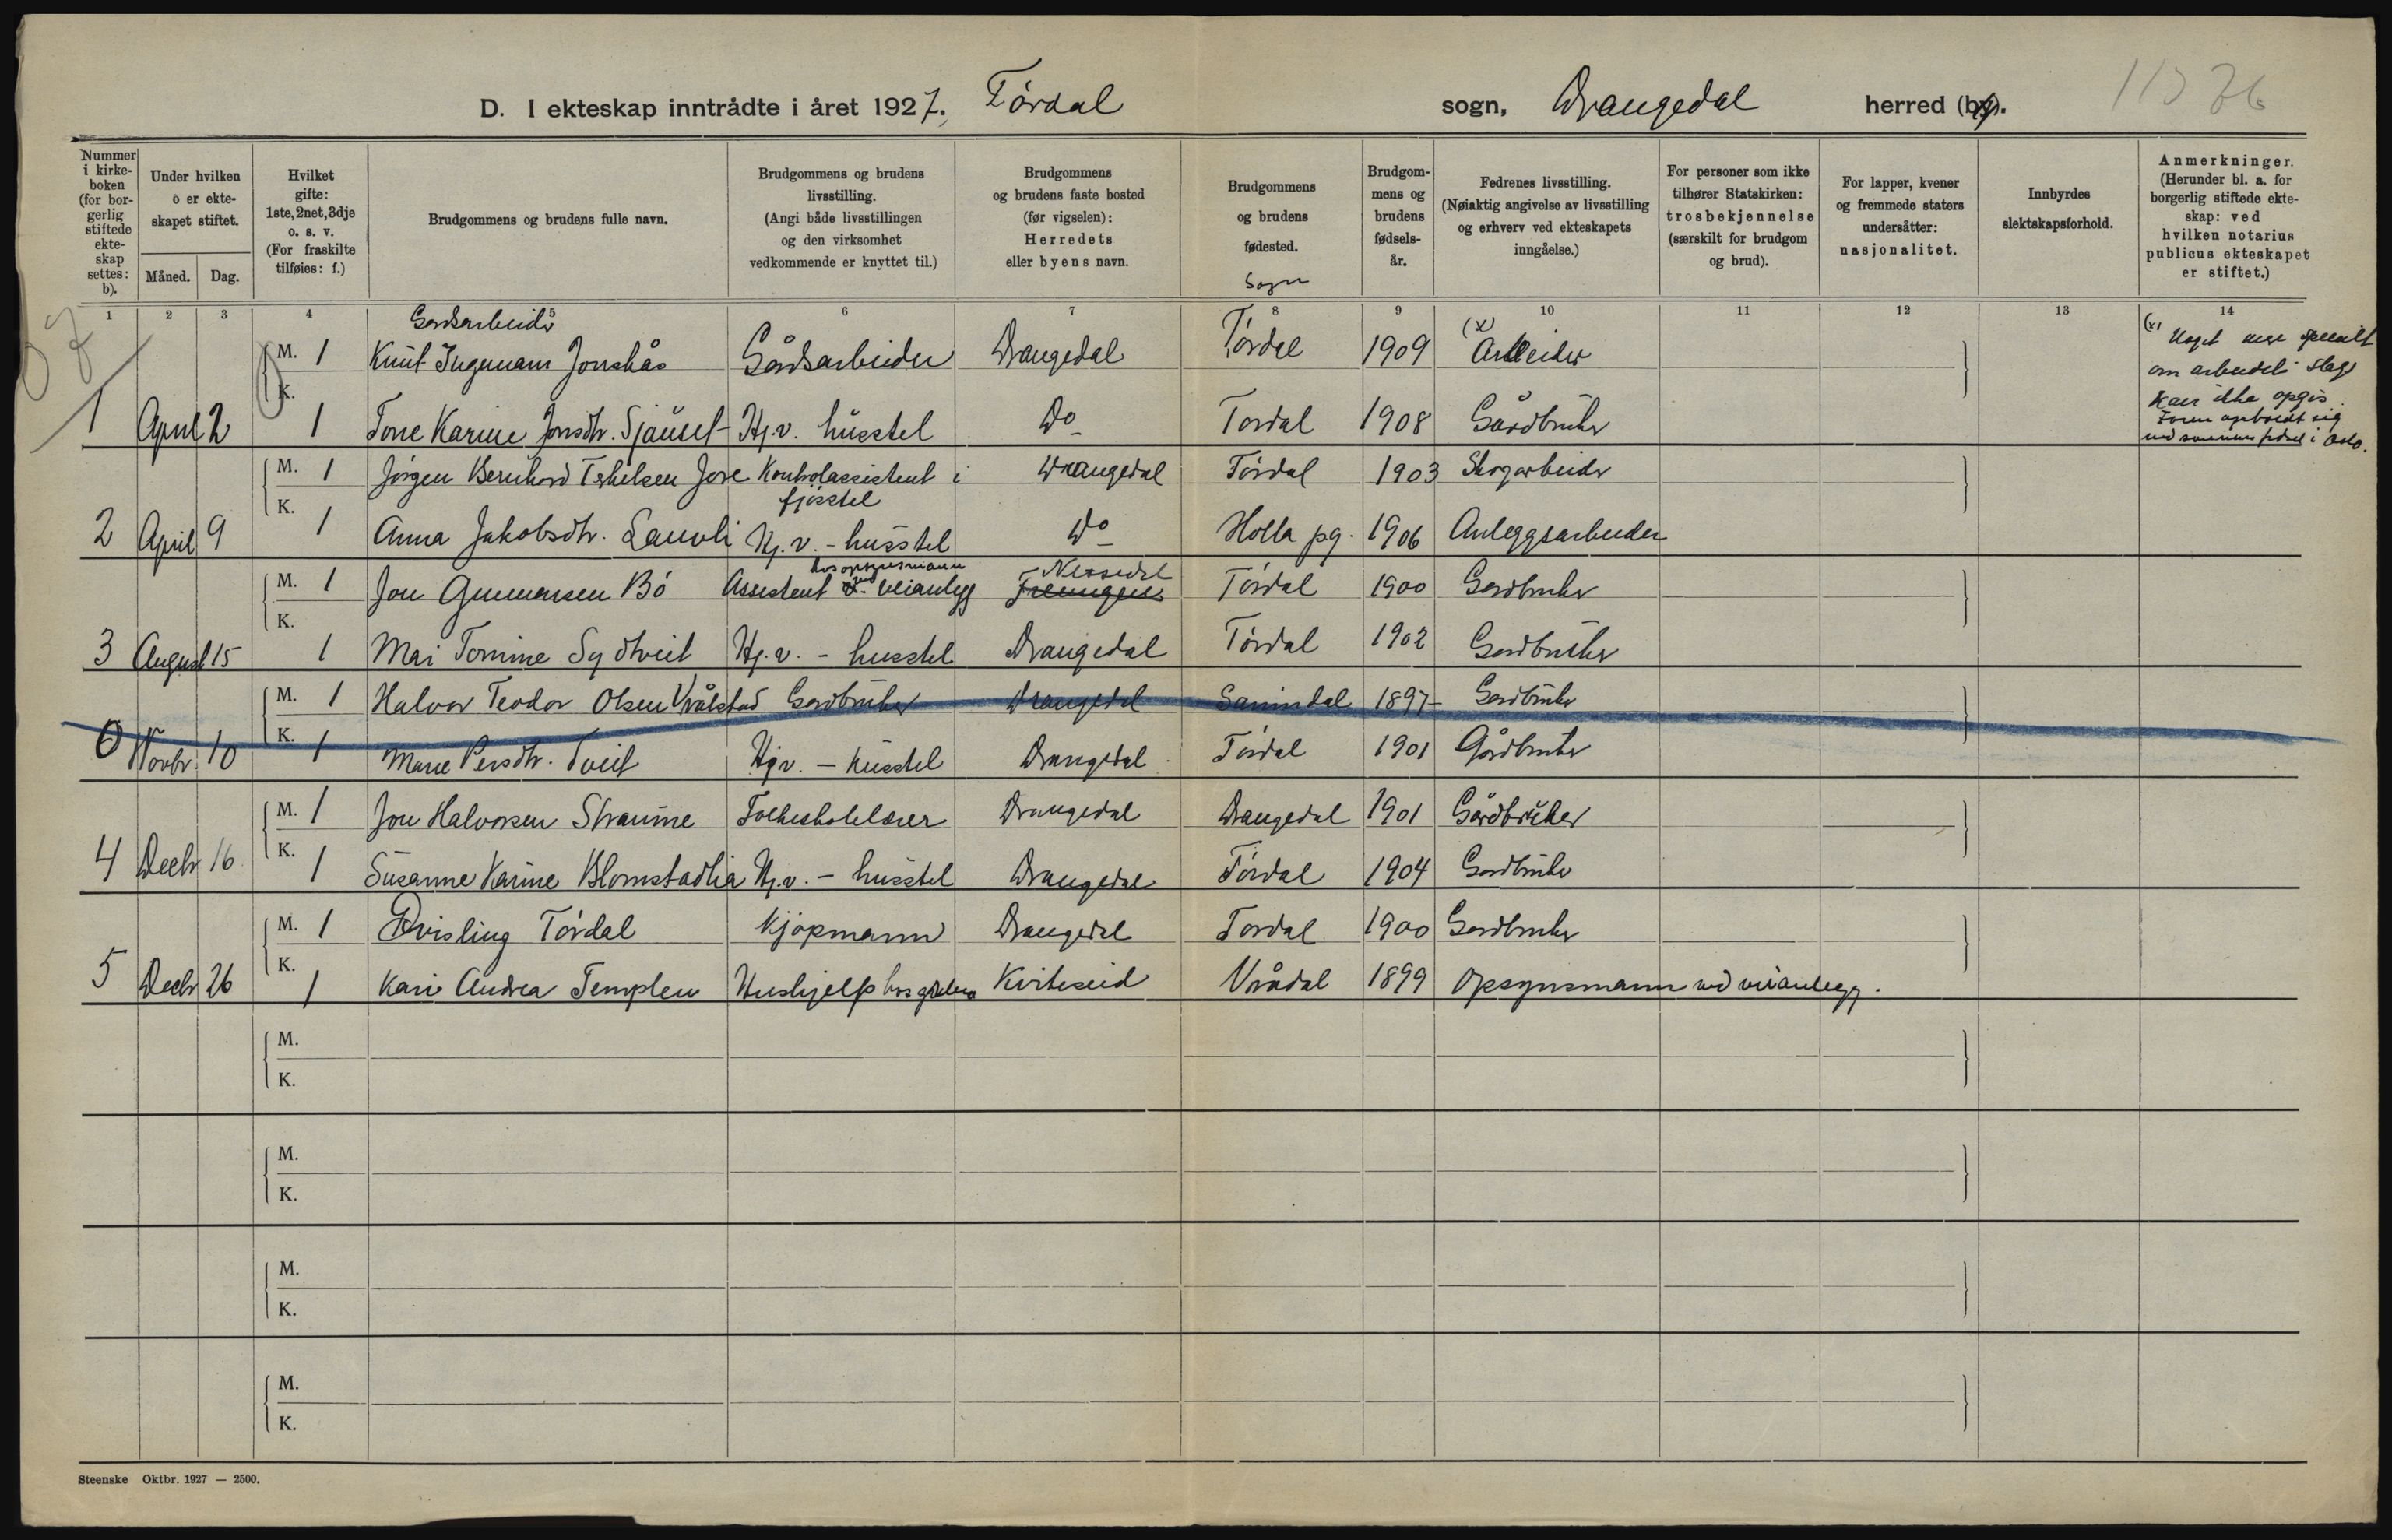 D. I ekteskap inntrådte i året 1927. Tórdal sogn, Drangedal herred (by).
Nummer i kirke-boken (for bor-gerlig stiftede ekte-skap settes: b).
Under hvilken
o er ekte-
skapet stiftet.
Måned. Dag.
Hvilket
gifte:
1ste, 2net, 3dje
o. s. v.
(For fraskilte
tilføies: f.)
Brudgommens og brudens fulle navn.
Brudgommens og brudens
livsstilling.
(Angi både livsstillingen
og den virksomhet
vedkommende er knyttet til.)
Brudgommens
og brudens faste bosted
(før vigselen):
Herredets
eller byens navn.
Brudgommens
og brudens
fødested.
Sogn
Brudgom-
mens og
brudens
fødsels-
år.
Fedrenes livsstilling.
(Nøiaktig angivelse av livsstilling
og erhverv ved ekteskapets
inngåelse.)
For personer som ikke
tilhører Statskirken:
trosbekjennelse
(særskilt for brudgom
og brud).
For lapper, kvener
og fremmede staters
undersåtter:
nasjonalitet.
Innbyrdes
slektskapsforhold.
Anmerkninger.
(Herunder bl. a. for
borgerlig stiftede ekte-
skap: ved
hvilken notarius
publicus ekteskapet
er stiftet.)
1 2 3 4 5 6 7 8 9 10 11 12 13 14
Gardsarbeider
M. 1 Knut Ingemann Jonskås Gårdsarbeider Drangedal Tórdal 1909 (x) Arbeider
(x) Noget mere specielt
om arbeidets slags
kan ikke opgis.
1 April 2 K. 1 Tone Karine Jonsdtr. Sjåuset Hj.v. husstel Do Tordal 1908 Gårdbruker
M. 1 Jórgen Bernhard Terkelsen Jore Kontrolassistent i fjósstel Drangedal Tórdal 1903 Skogarbeider
2 April 9 K. 1 Anna Jakobsdtr. Lauvli Hj.v. - husstel Do Holla pg. 1906 Anleggsarbeider
M. 1 Jon Gunnarsen Bó Assistent hos opsynsmann ved veianlegg Nissedal Tórdal 1900 Gardbruker
3 August 15 K. 1 Mai Tomine Sydtveit Hj.v. - husstel Drangedal Tórdal 1902 Gardbruker
M. 1 Halvor Teodor Olsen Vrålstad Gardbruker Drangedal Sannidal 1897 Gardbruker
0 Novbr. 10 K. 1 Marie Persdtr. Tveit Hj.v. - husstel Drangedal Tórdal 1901 Gårdbruker
M. 1 Jon Halvorsen Straume Folkeskolelærer Drangedal Drangedal 1901 Gårdbruker
4 Decbr 16 K. 1 Susanne Karine Blomstadlia Hj.v. - husstel Drangedal Tórdal 1904 Gardbruker
M. 1 Qvisling Tórdal Kjópmann Drangedal Tordal 1900 Gardbruker
5 Decbr 26 K. 1 Kari Andrea Templen Hushjelp hos Kviteseid Vrådal 1899 Opsynsmann ved veianlegg.
M.
K.
M.
K.
M.
K.
M.
K.
Steenske Oktbr. 1927 — 2500.